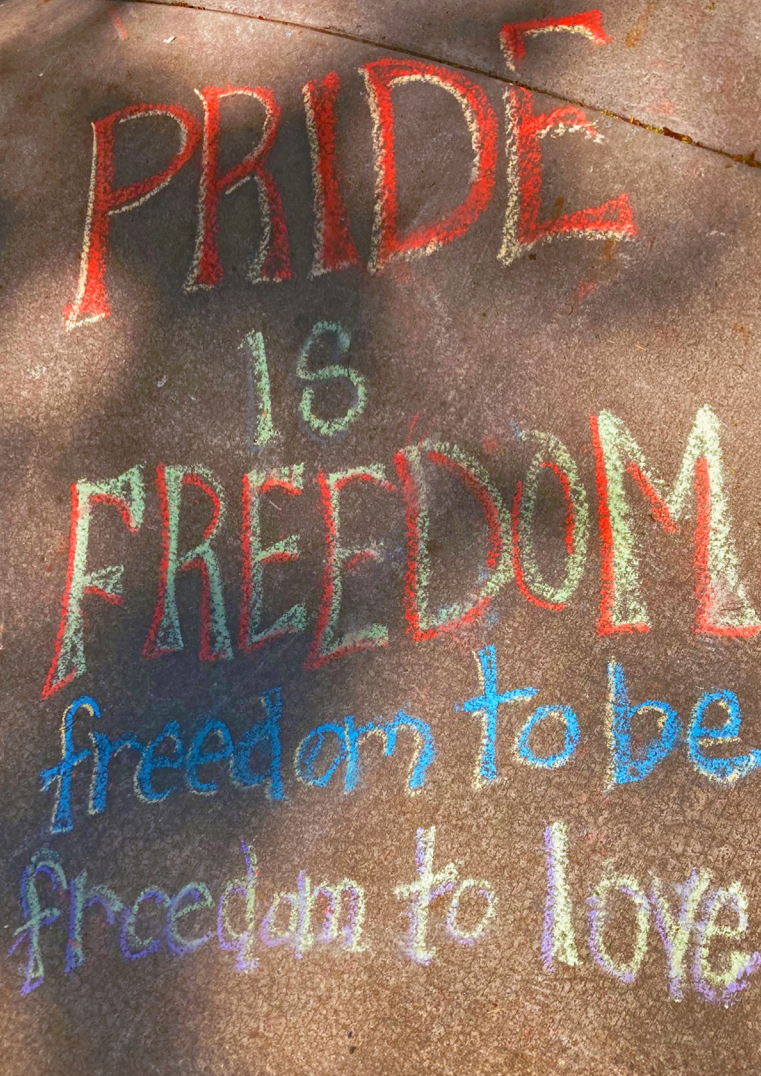 PRIDE
IS
FREEDOM
freedom to be
freedom to love